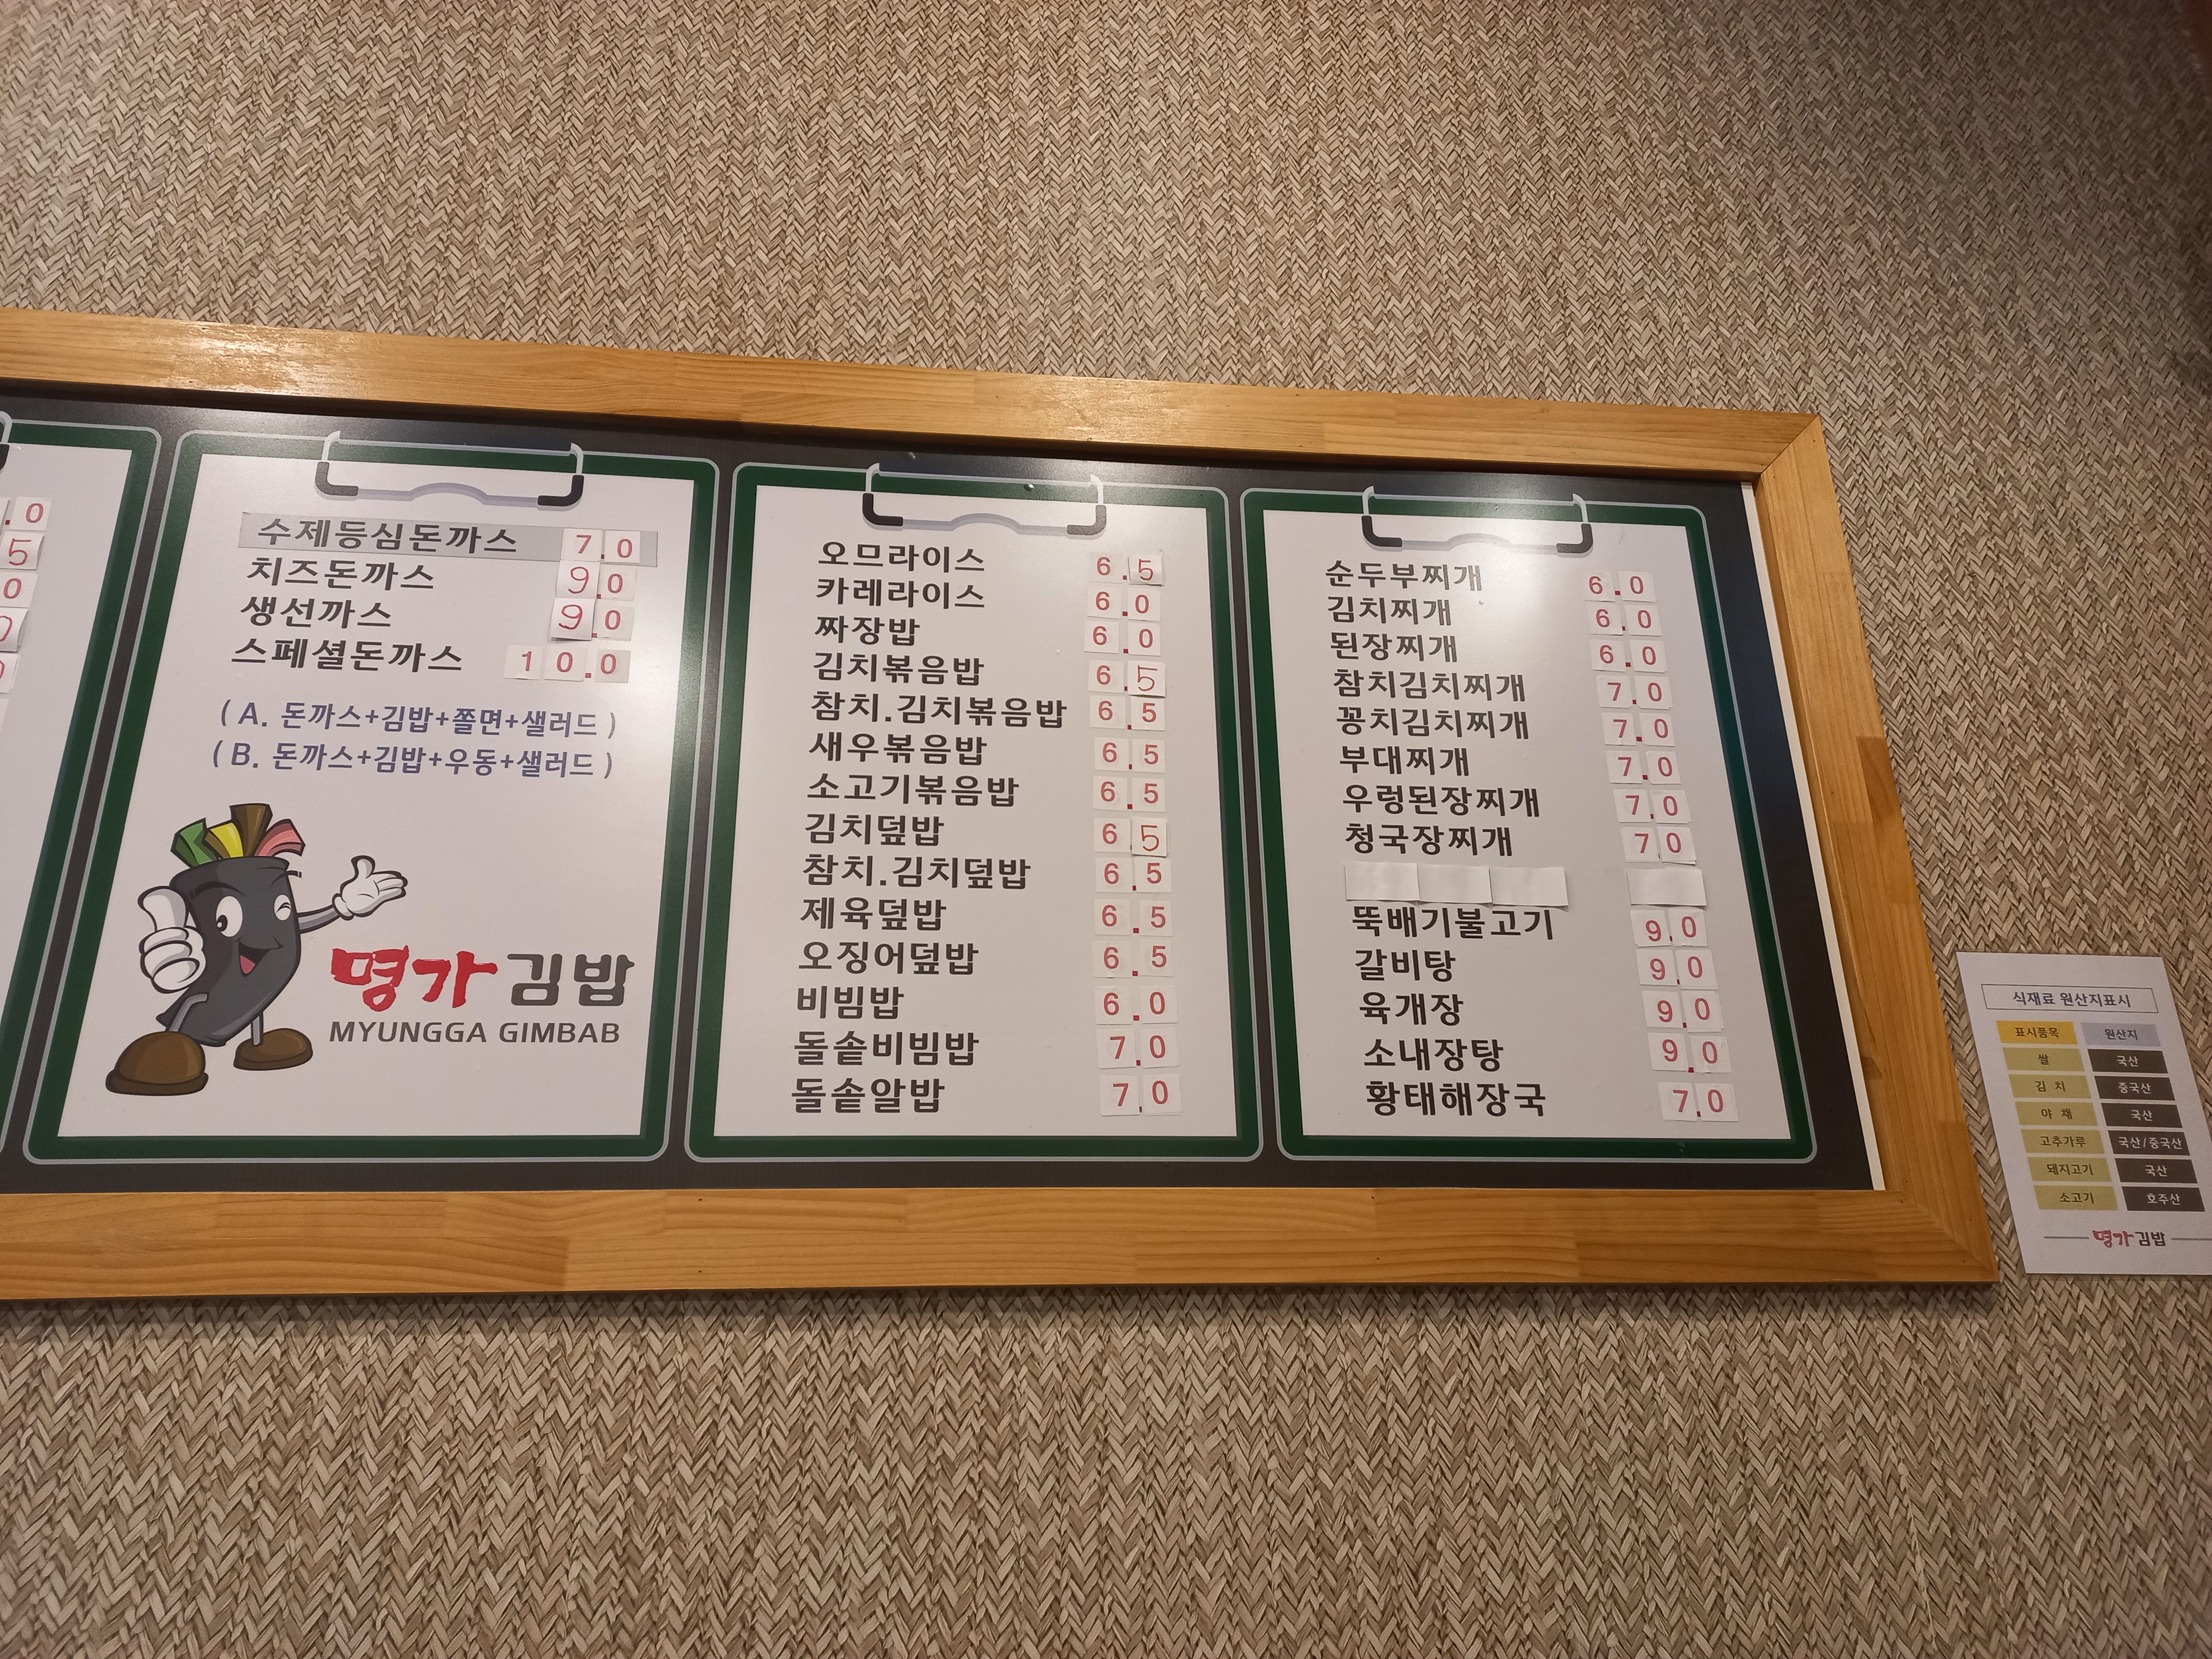 .0
5
0
0
0
수제등심돈까스 7.0
치즈돈까스 9.0
생선까스 9.0
스페셜돈까스 10.0
( A. 돈까스+김밥+쫄면+샐러드 )
( B. 돈까스+김밥+우동+샐러드 )
명가김밥
MYUNGGA GIMBAB
오므라이스 6.5
카레라이스 6.0
짜장밥 6.0
김치볶음밥 6.5
참치.김치볶음밥 6.5
새우볶음밥 6.5
소고기볶음밥 6.5
김치덮밥 6.5
참치.김치덮밥 6.5
제육덮밥 6.5
오징어덮밥 6.5
비빔밥 6.0
돌솥비빔밥 7.0
돌솥알밥 7.0
순두부찌개 6.0
김치찌개 6.0
된장찌개 6.0
참치김치찌개 7.0
꽁치김치찌개 7.0
부대찌개 7.0
우렁된장찌개 7.0
청국장찌개 70
뚝배기불고기 9.0
갈비탕 9.0
육개장 9.0
소내장탕 9.0
황태해장국 7.0
식재료 원산지표시
표시품목 원산지
쌀 국산
김 치 중국산
야 채 국산
고추가루 국산/중국산
돼지고기 국산
소고기 호주산
명가김밥